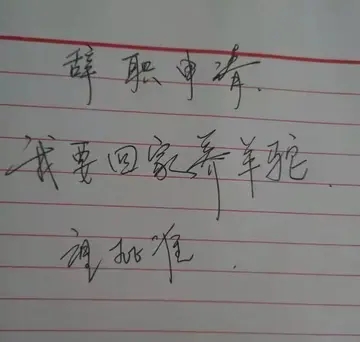 辞职申请.
我要回家养羊驼.
请批准.